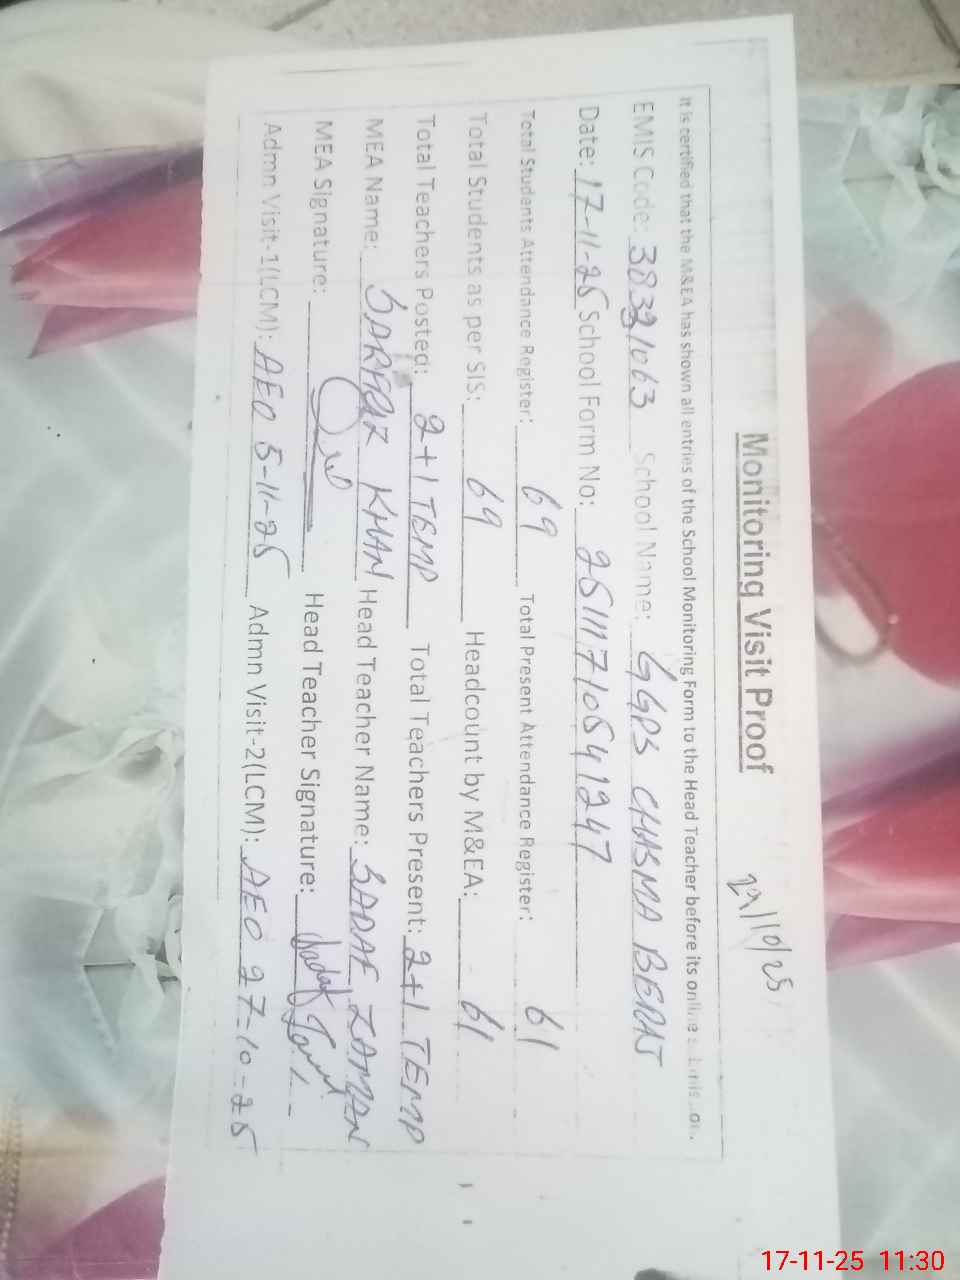 Monitoring Visit Proof
29/10/25
It is certified that the M&EA has shown all entries of the School Monitoring Form to the Head Teacher before its online
EMIS Code: 38321063 School Name: GGPS CHASMA
Date: 17-11-25 School Form No: 25111710541247
Total Students Attendance Register: 69 Total Present Attendance Register: 61
Total Students as per SIS: 69 Headcount by M&EA: 61
Total Teachers Posted: 2+1 TEMP Total Teachers Present: 2+1 TEMP
MEA Name: SARFRAZ KHAN Head Teacher Name: SADAF ZAMAN
MEA Signature: Head Teacher Signature: Sadaf
Admn Visit-1(LCM): AEO 5-11-25 Admn Visit-2(LCM): AEO 27-10-25
17-11-25 11:30